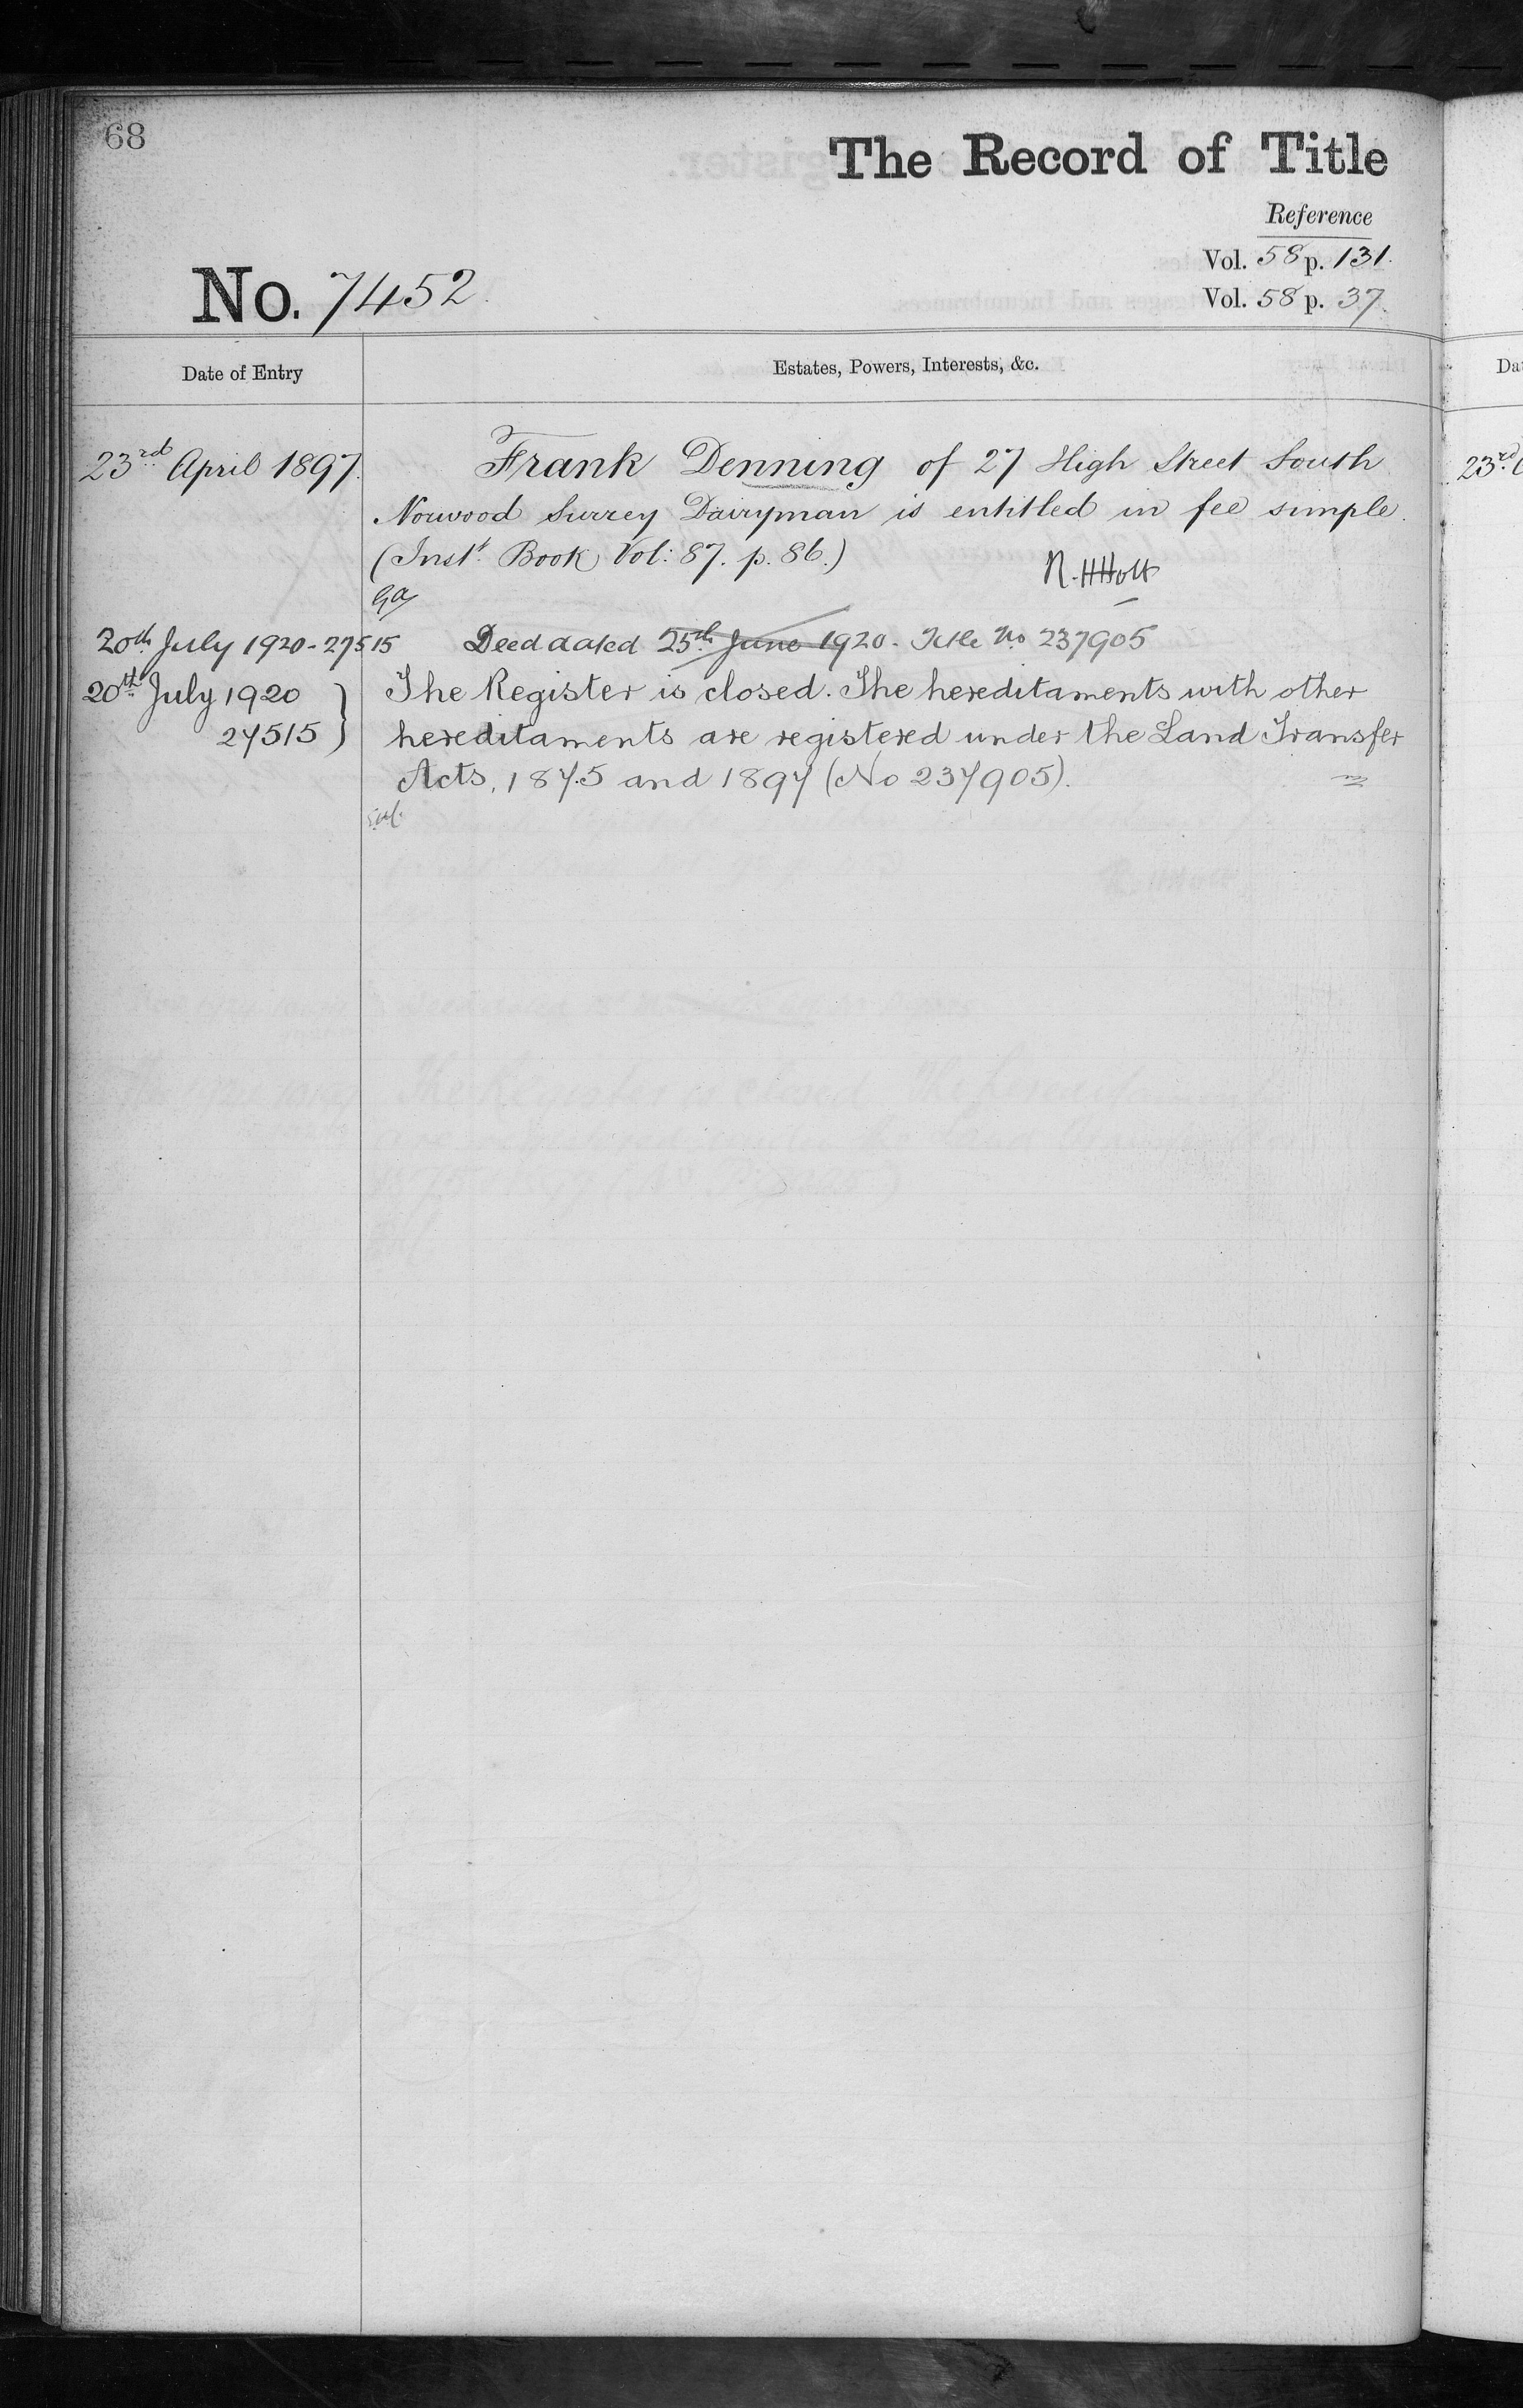 68
The Record of Title
Reference
Vol. 58 p. 131.
No. 7452.
Vol. 58 p. 37.
Date of Entry
Estates, Powers, Interests, &c.
23rd April 1897.
Frank Denning of 27 High Street South
Norwood Surrey Dairyman is entitled in fee simple.
(Inst. Book Vol: 87. p. 86.)
R.H Holt
20th July 1920 - 27515
Deed dated 25th June 1920 - Title No 237905
20th July 1920
27515 }
The Register is closed. The hereditaments with other
hereditaments are registered under the Land Transfer
Acts, 1875 and 1897 (No 237905).
Dat
23rd